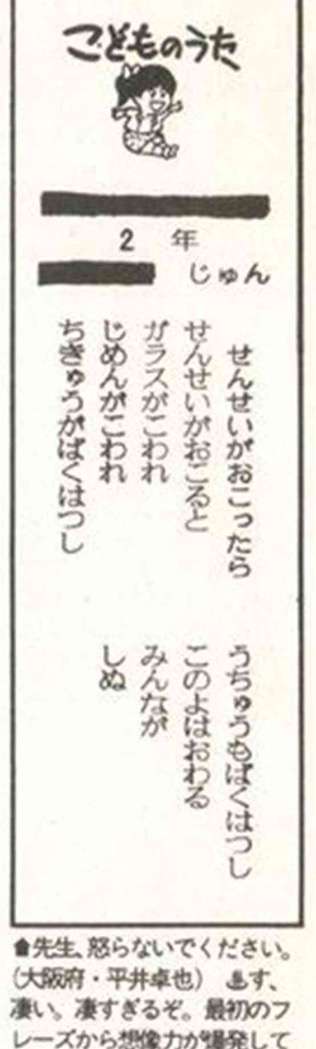 こどものうた
2年
じゅん
せんせいがおこったら
せんせいがおこると
ガラスがこわれ
じめんがこわれ
ちきゅうがばくはつし
うちゅうもばくはつし
このよはおわる
みんなが
しぬ
先生、怒らないでください。
(大阪府・平井卓也) す、
凄い。凄すぎるぞ。最初のフ
レーズから想像力が爆発して